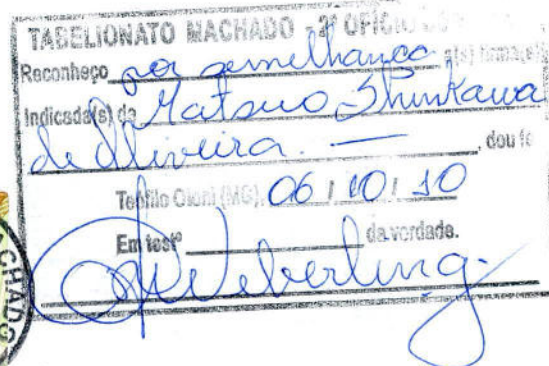 TABELIONATO MACHADO - 2º OFÍCIO
Reconheço por semelhança a(s) firma(s)
indicada(s) de Matsuo Shinkawa
de Oliveira. — , dou fé
Teófilo Otoni (MG), 06 / 10 / 10
Em testº da verdade.
Weberling.
CHADO